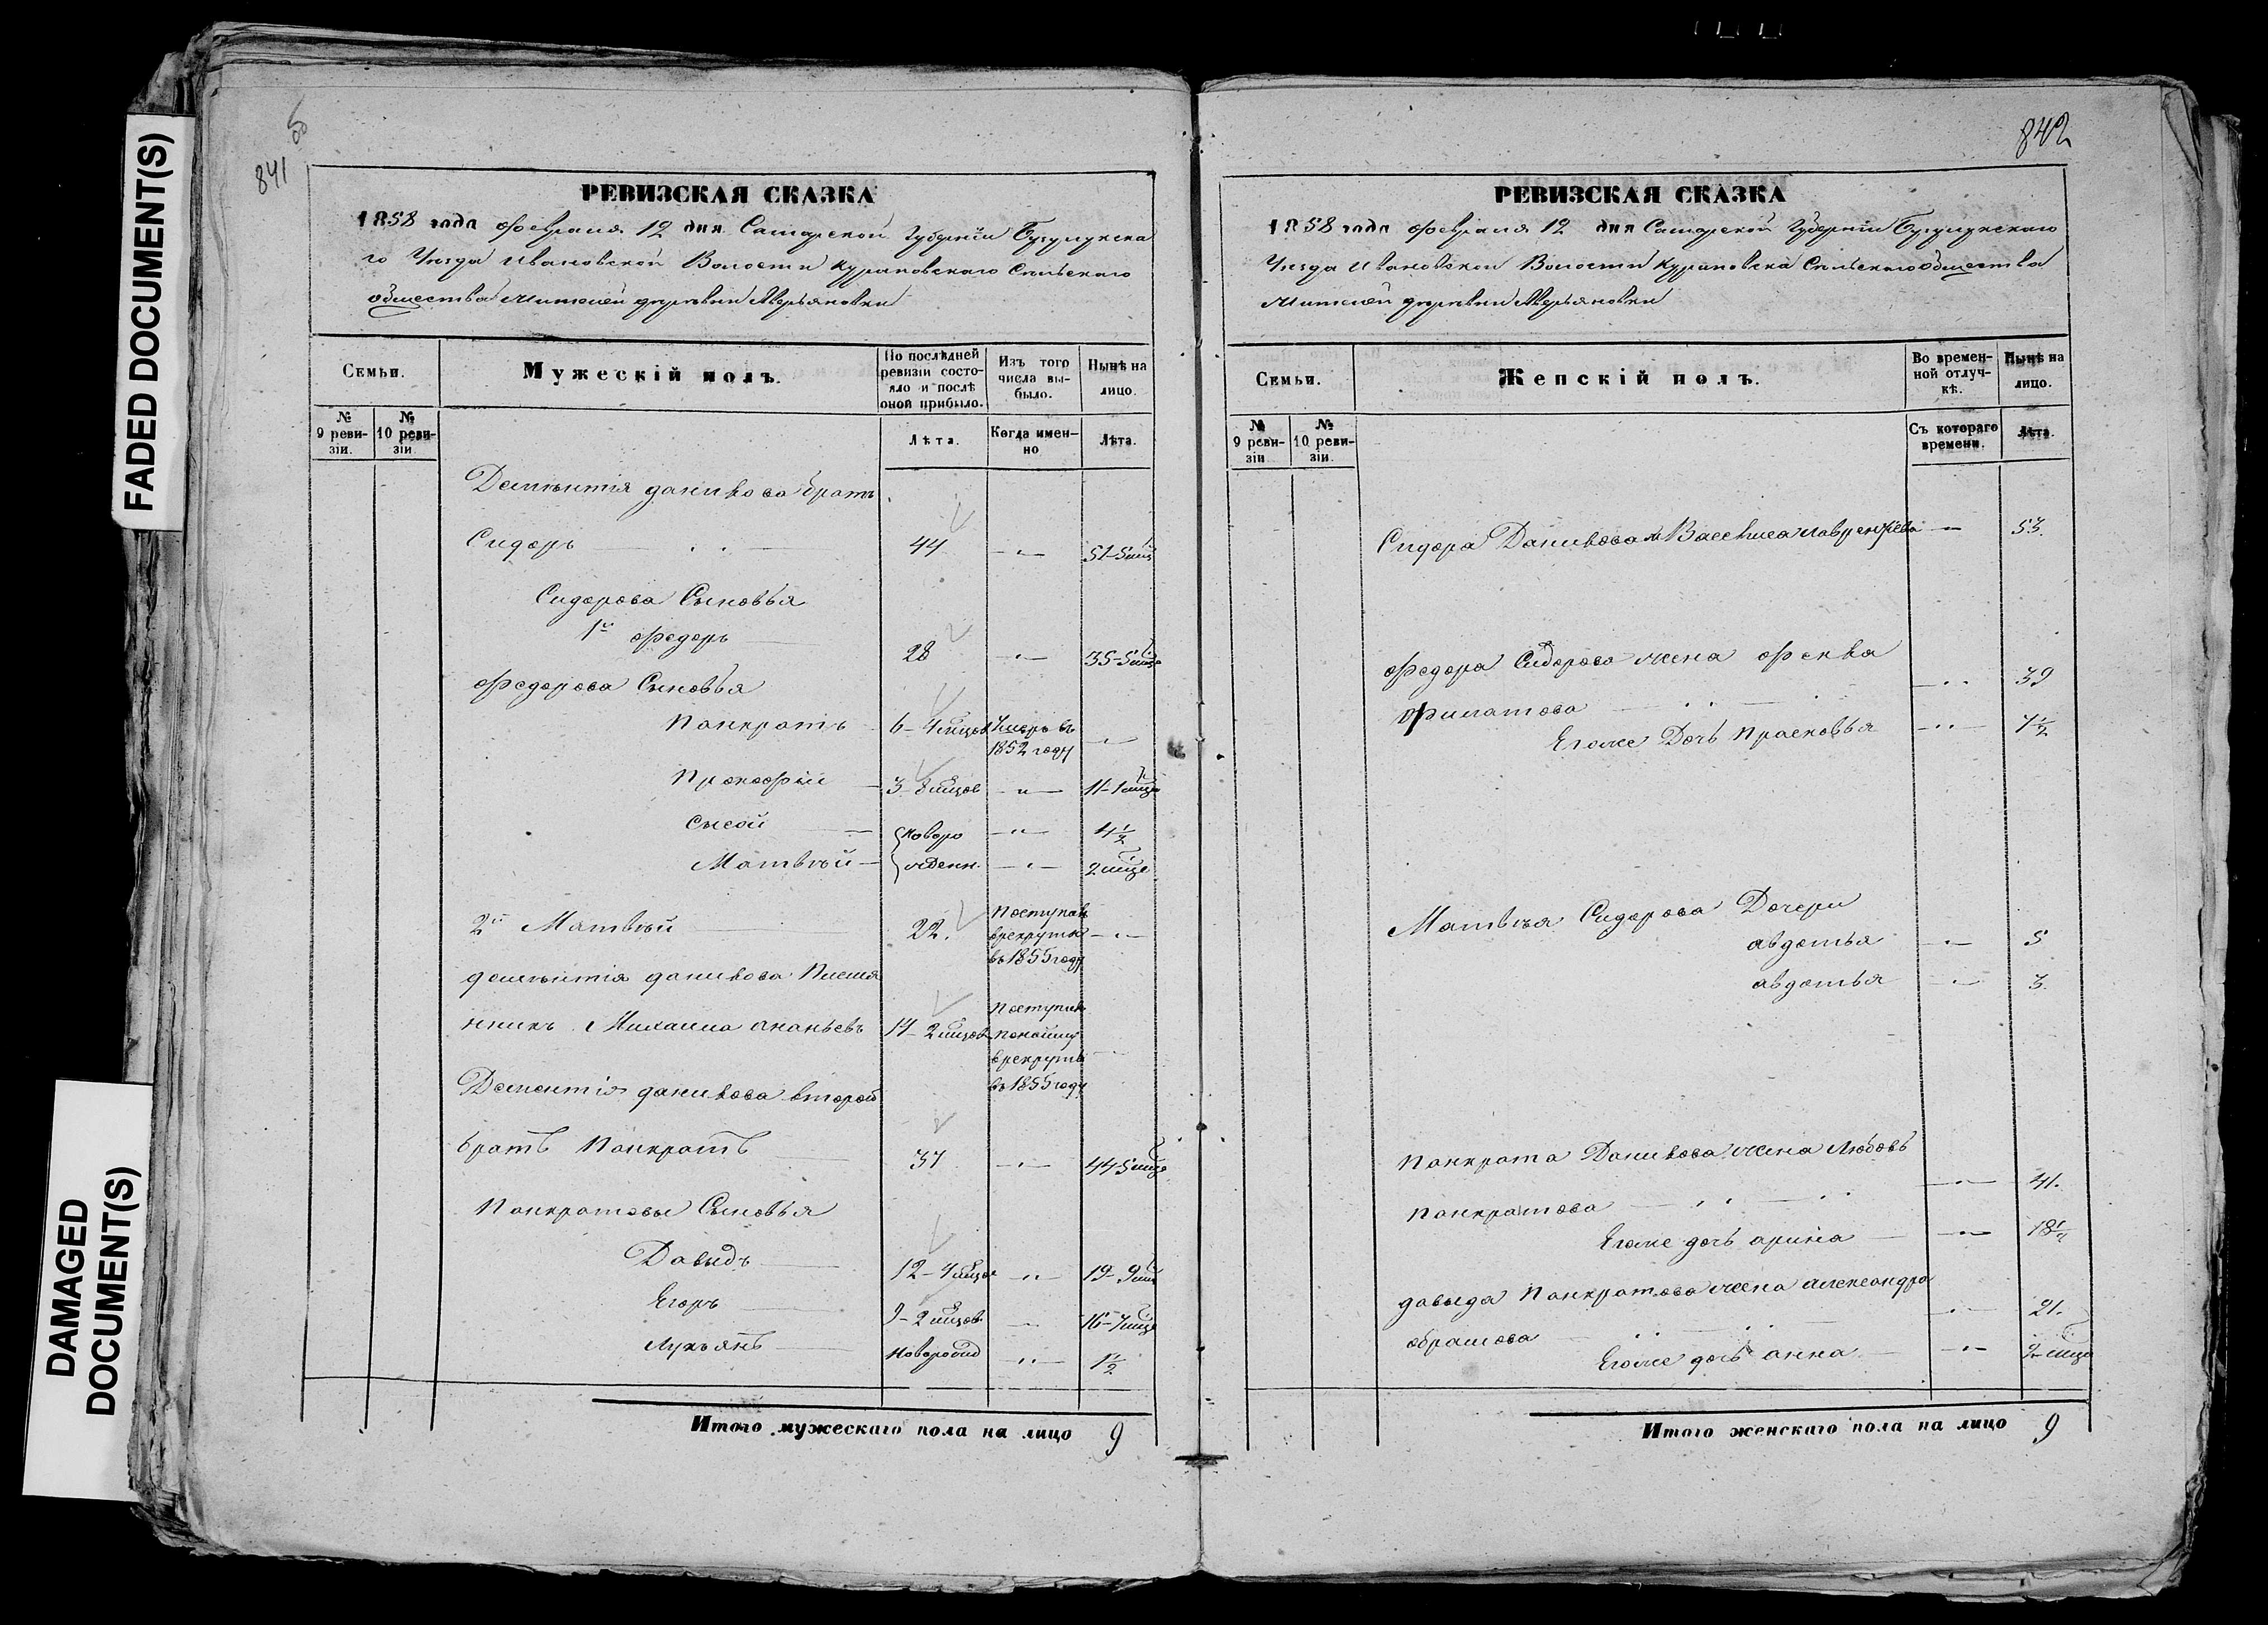 FADED DOCUMENT(S)
DAMAGED
DOCUMENT(S)
841
РЕВИЗСКАЯ СКАЗКА
1858 года февраля 12 дня Самарской Губерніи Бузулукска
го Уезда Ивановской Волости Сельскаго
общества деревни Аверьяновки
Семьи.
Мужескій полъ.
По послѣдней
ревизіи состо-
яло и послѣ
оной прибыло.
Изъ того
числа вы-
было.
Нынѣ на
лицо.
№
9 реви-
зіи.
№
10 реви-
зіи.
Лѣта.
Когда имен-
но
Лѣта.
Дементія данилова братъ
Сидоръ 44 51-5
Сидорова Сыновья
1й федоръ 28 35-5
федорова Сыновья
Панкратъ 6-4 Умеръ въ
1852 году
Прокофий 3-8 11-1
Сысой новоро 4 1/2
Матвѣй жденн. 2
2й Матвѣй 22. Поступил
в рекруты
въ 1855 году
дементія данилова Племя
нникъ Михаила ананьевъ 17-2 Поступил
в рекруты
въ 1855 году
Дементія данилова второй
братъ Панкратъ 37 44-5
Панкратовы Сыновья
Давыдъ 12- 19-9
Егоръ 9-2 16-
Лукьянъ Новорожд 1 1/2
Итого мужескаго пола на лицо 9
842
РЕВИЗСКАЯ СКАЗКА
1858 года февраля 12 дня Самарской Губерніи Бузулукскаго
Уезда Ивановской Волости Сельскаго общества
деревни Аверьяновки
Семьи.
Женскій полъ.
Во времен-
ной отлуч-
кѣ.
Нынѣ на
лицо.
№
9 реви-
зіи
№
10 реви-
зіи.
Съ котораго
времени.
Лѣта.
Сидора Данилова ж Васелиса лаврентьева 53.
федора Сидорова жена фекла
филатова 39
Егоже Дочь прасковья 7 1/2
Матвѣя Сидорова Дочери
авдотья 5
авдотья 3.
Панкрата Данилова жена Любовь
панкратова 41.
Егоже дочь арина 18
давыда Панкратова жена александра
абрамова 21.
Егоже дочь анна
Итого женскаго пола на лицо 9